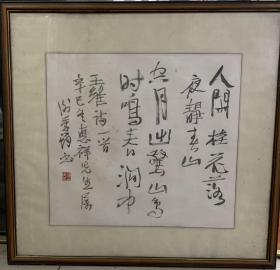 人閒桂花落
夜静春山
空月出驚山鳥
時鳴春澗中
王維詩一首
辛巳冬惠祥先生屬